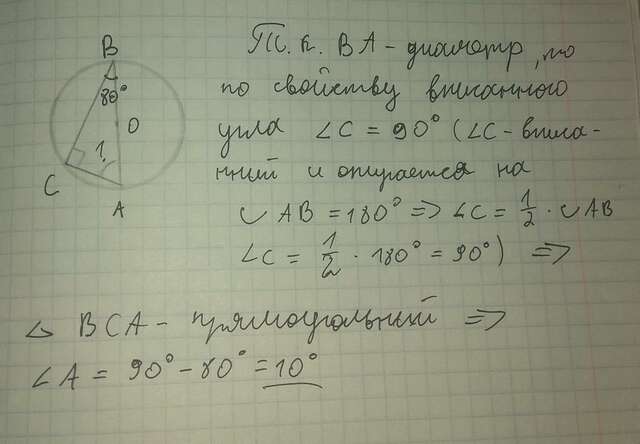 B
80°
O
1
C
A
Т. к. BA - диаметр, то
по свойству вписанного
угла ∠C = 90° (∠C - вписа-
нный и опирается на
◡ AB = 180° => ∠C = 1/2 · ◡ AB
∠C = 1/2 · 180° = 90°) =>
△ BCA - прямоугольный =>
∠A = 90° - 80° = 10°